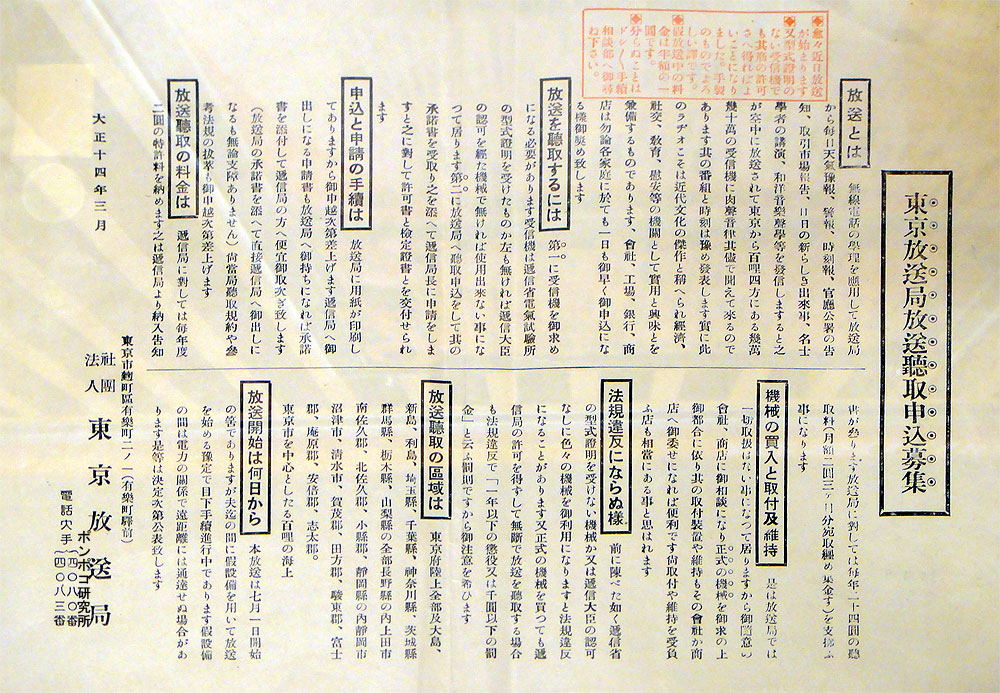 東京放送局放送聽取申込募集
◆愈々近日放送
が始まります
又型式證明の
ない受信機で
も其筋の許可
さへ得ればよ
いことになり
ました。手製
のものでよろ
しい譯です。
◆假放送中の料
金は半額の一
圓です。
◆分らぬことは
ドシ〱手續
相談部へ御尋
ね下さい。
放送とは
無線電話の學理を應用して放送局
から每日天氣豫報、警報、時刻報、官廳公署の告
知、取引市場報告、日日の新らしき出來事、名士
學者の講演、和洋音樂聲學等を發信しますると之
が空中に放送されて東京から百哩四方にある幾萬
幾十萬の受信機に肉聲音律其儘で聞えて來るので
あります其の番組と時刻は豫め發表します實に此
のラヂオこそは近代文化の傑作と稱へられ經濟、
社交、敎育、慰安等の機關として實用と興味とを
兼備するものであります、會社、工場、銀行、商
店は勿論各家庭に於ても一日も御早く御申込にな
る樣御奬め致します
放送を聽取するには
第一に受信機を御求め
になる必要があります受信機は遞信省電氣試驗所
の型式證明を受けたものか左も無ければ遞信大臣
の認可を經た機械で無ければ使用出來ない事にな
つて居ります第二に放送局へ聽取申込をして其の
承諾書を受取り之を添へて遞信局長に申請をしま
すと之に對して許可書と檢定證書とを交付せられ
ます
申込と申請の手續は
放送局に用紙が印刷し
てありますから御申越次第差上げます遞信局へ御
出しになる申請書も放送局へ御持ちになれば承諾
書を添付して遞信局の方へ便宜御取次ぎ致します
(放送局の承諾書を添へて直接遞信局へ御出しに
なるも無論支障ありません)尙當局聽取規約や參
考法規の拔萃も御申越次第差上げます
放送聽取の料金は
遞信局に對しては每年度
二圓の特許料を納めます之は遞信局より納入告知
書が參ります放送局に對しては每年二十四圓の聽
取料(月額二圓三ヶ月分宛取纒め集金す)を支拂ふ
事になります
機械の買入と取付及維持
是は放送局では
一切取扱はない事になつて居りますから御隨意の
會社、商店に御相談になり正式の機械を御求の上
御都合に依り其の取付裝置や維持もその會社か商
店へ御委せになれば便利です尙取付や維持を受負
ふ店も相當にある事と思はれます
法規違反にならぬ樣
前に陳べた如く遞信省
の型式證明を受けない機械か又は遞信大臣の認可
なしに色々の機械を御利用になりますと法規違反
になることがあります又正式の機械を買つても遞
信局の許可を得ずして無斷で放送を聽取する場合
も法規違反で「一年以下の懲役又は千圓以下の罰
金」と云ふ罰則ですから御注意を希ひます
放送聽取の區域は
東京府陸上全部及大島、
新島、利島、埼玉縣、千葉縣、神奈川縣、茨城縣
群馬縣、栃木縣、山梨縣の全部長野縣の內上田市
南佐久郡、北佐久郡、小縣郡、靜岡縣の內靜岡市
沼津市、淸水市、賀茂郡、田方郡、駿東郡、富士
郡、庵原郡、安倍郡、志太郡。
東京市を中心としたる百哩の海上
放送開始は何日から
本放送は七月一日開始
の筈でありますが夫迄の間に假設備を用いて放送
を始める豫定で目下手續進行中であります假設備
の間は電力の關係で遠距離には通達せぬ場合があ
ります是等は決定次第公表致します
大正十四年三月
東京市麴町區有樂町二ノ一(有樂町驛前)
社團法人 東京放送局
電話大手 四〇八〇番
四〇八三番
ポンポコ研究所